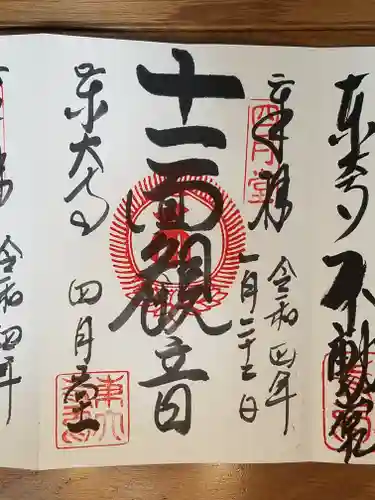 東大寺 不動堂
奉拝
四月堂
令和四年
一月二十三日
十一面観音
東大寺
四月堂
令和四年